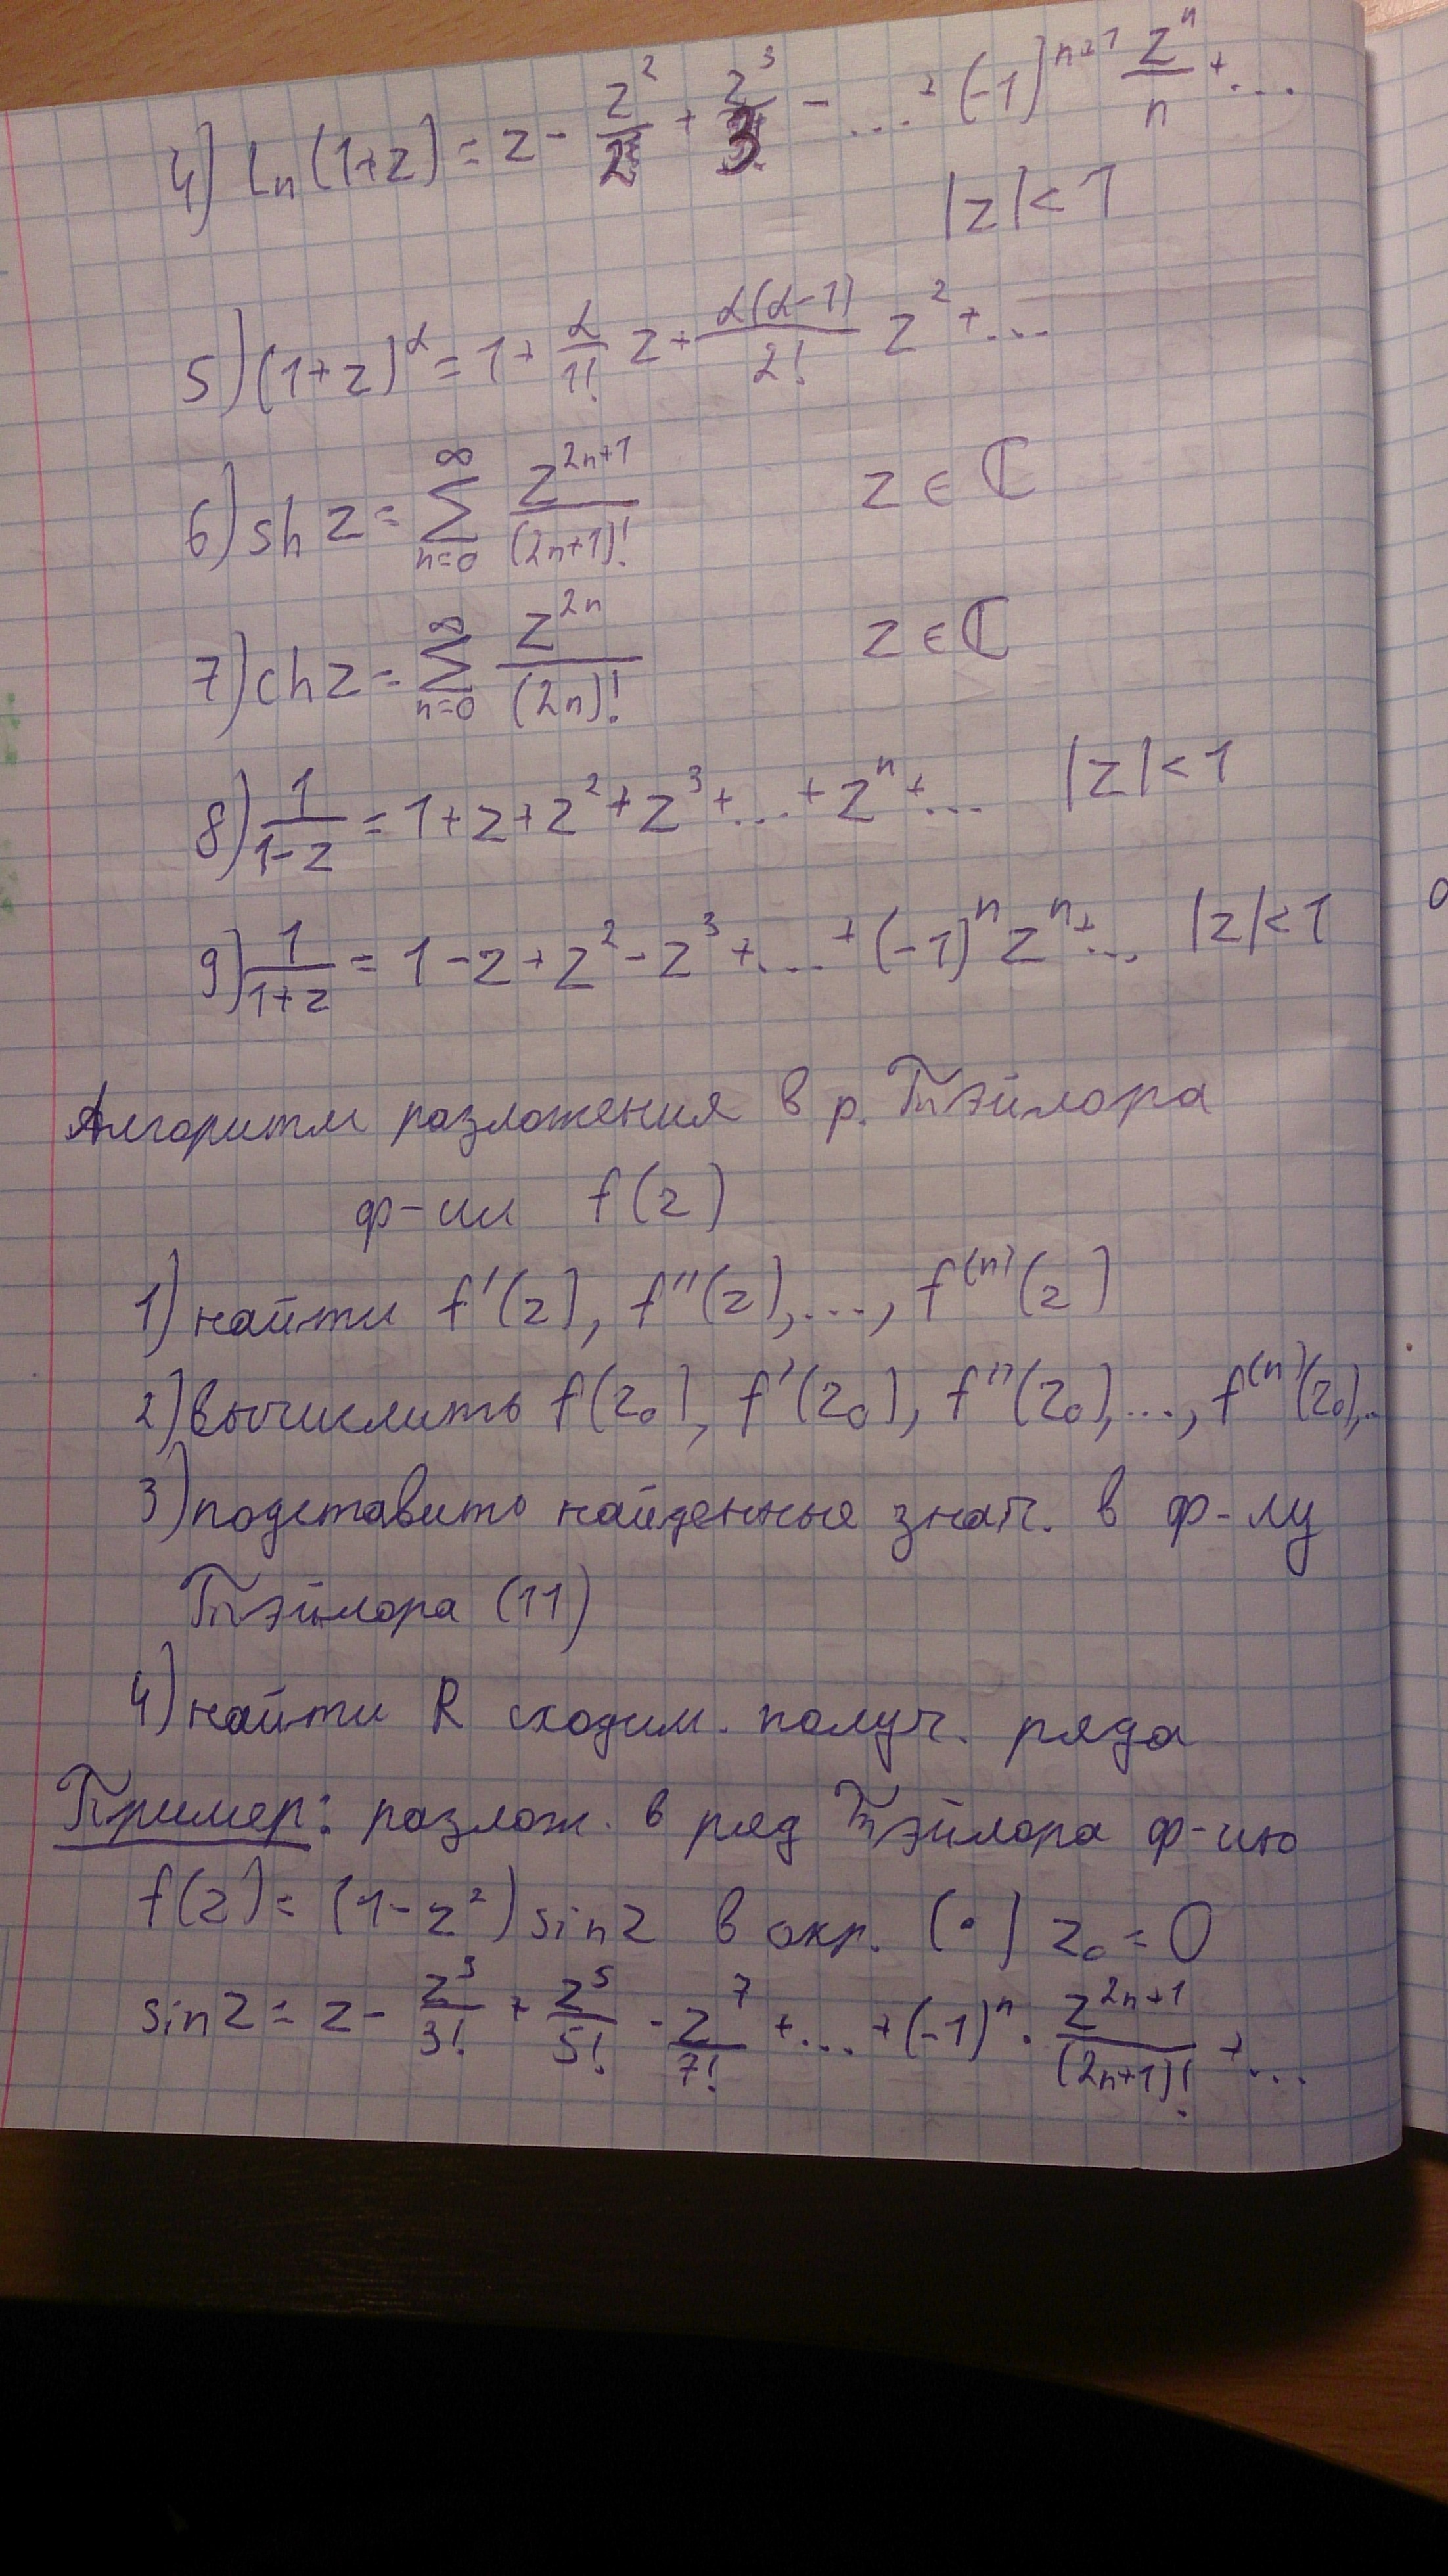 4) ln(1+z) = z - z²/2 + z³/3 - ... + (-1)ⁿ⁺¹ zⁿ/n + ...
|z| < 1
5) (1+z)^α = 1 + α/1! z + α(α-1)/2! z² + ...
6) sh z = ∑_{n=0}^{∞} z²ⁿ⁺¹/(2n+1)! z ∈ ℂ
7) ch z = ∑_{n=0}^{∞} z²ⁿ/(2n)! z ∈ ℂ
8) 1/(1-z) = 1 + z + z² + z³ + ... + zⁿ + ... |z| < 1
9) 1/(1+z) = 1 - z + z² - z³ + ... + (-1)ⁿ zⁿ + ... |z| < 1
Алгоритм разложения в р. Тэйлора
ф-ии f(z)
1) найти f'(z), f''(z), ..., f⁽ⁿ⁾(z)
2) вычислить f(z₀), f'(z₀), f''(z₀), ..., f⁽ⁿ⁾(z₀), ..
3) подставить найденные знач. в ф-лу
Тэйлора (11)
4) найти R сходим. получ. ряда
Пример: разлож. в ряд Тэйлора ф-ию
f(z) = (1-z²) sin z в окр. (•) z₀ = 0
sin z = z - z³/3! + z⁵/5! - z⁷/7! + ... + (-1)ⁿ · z²ⁿ⁺¹/(2n+1)! + ...